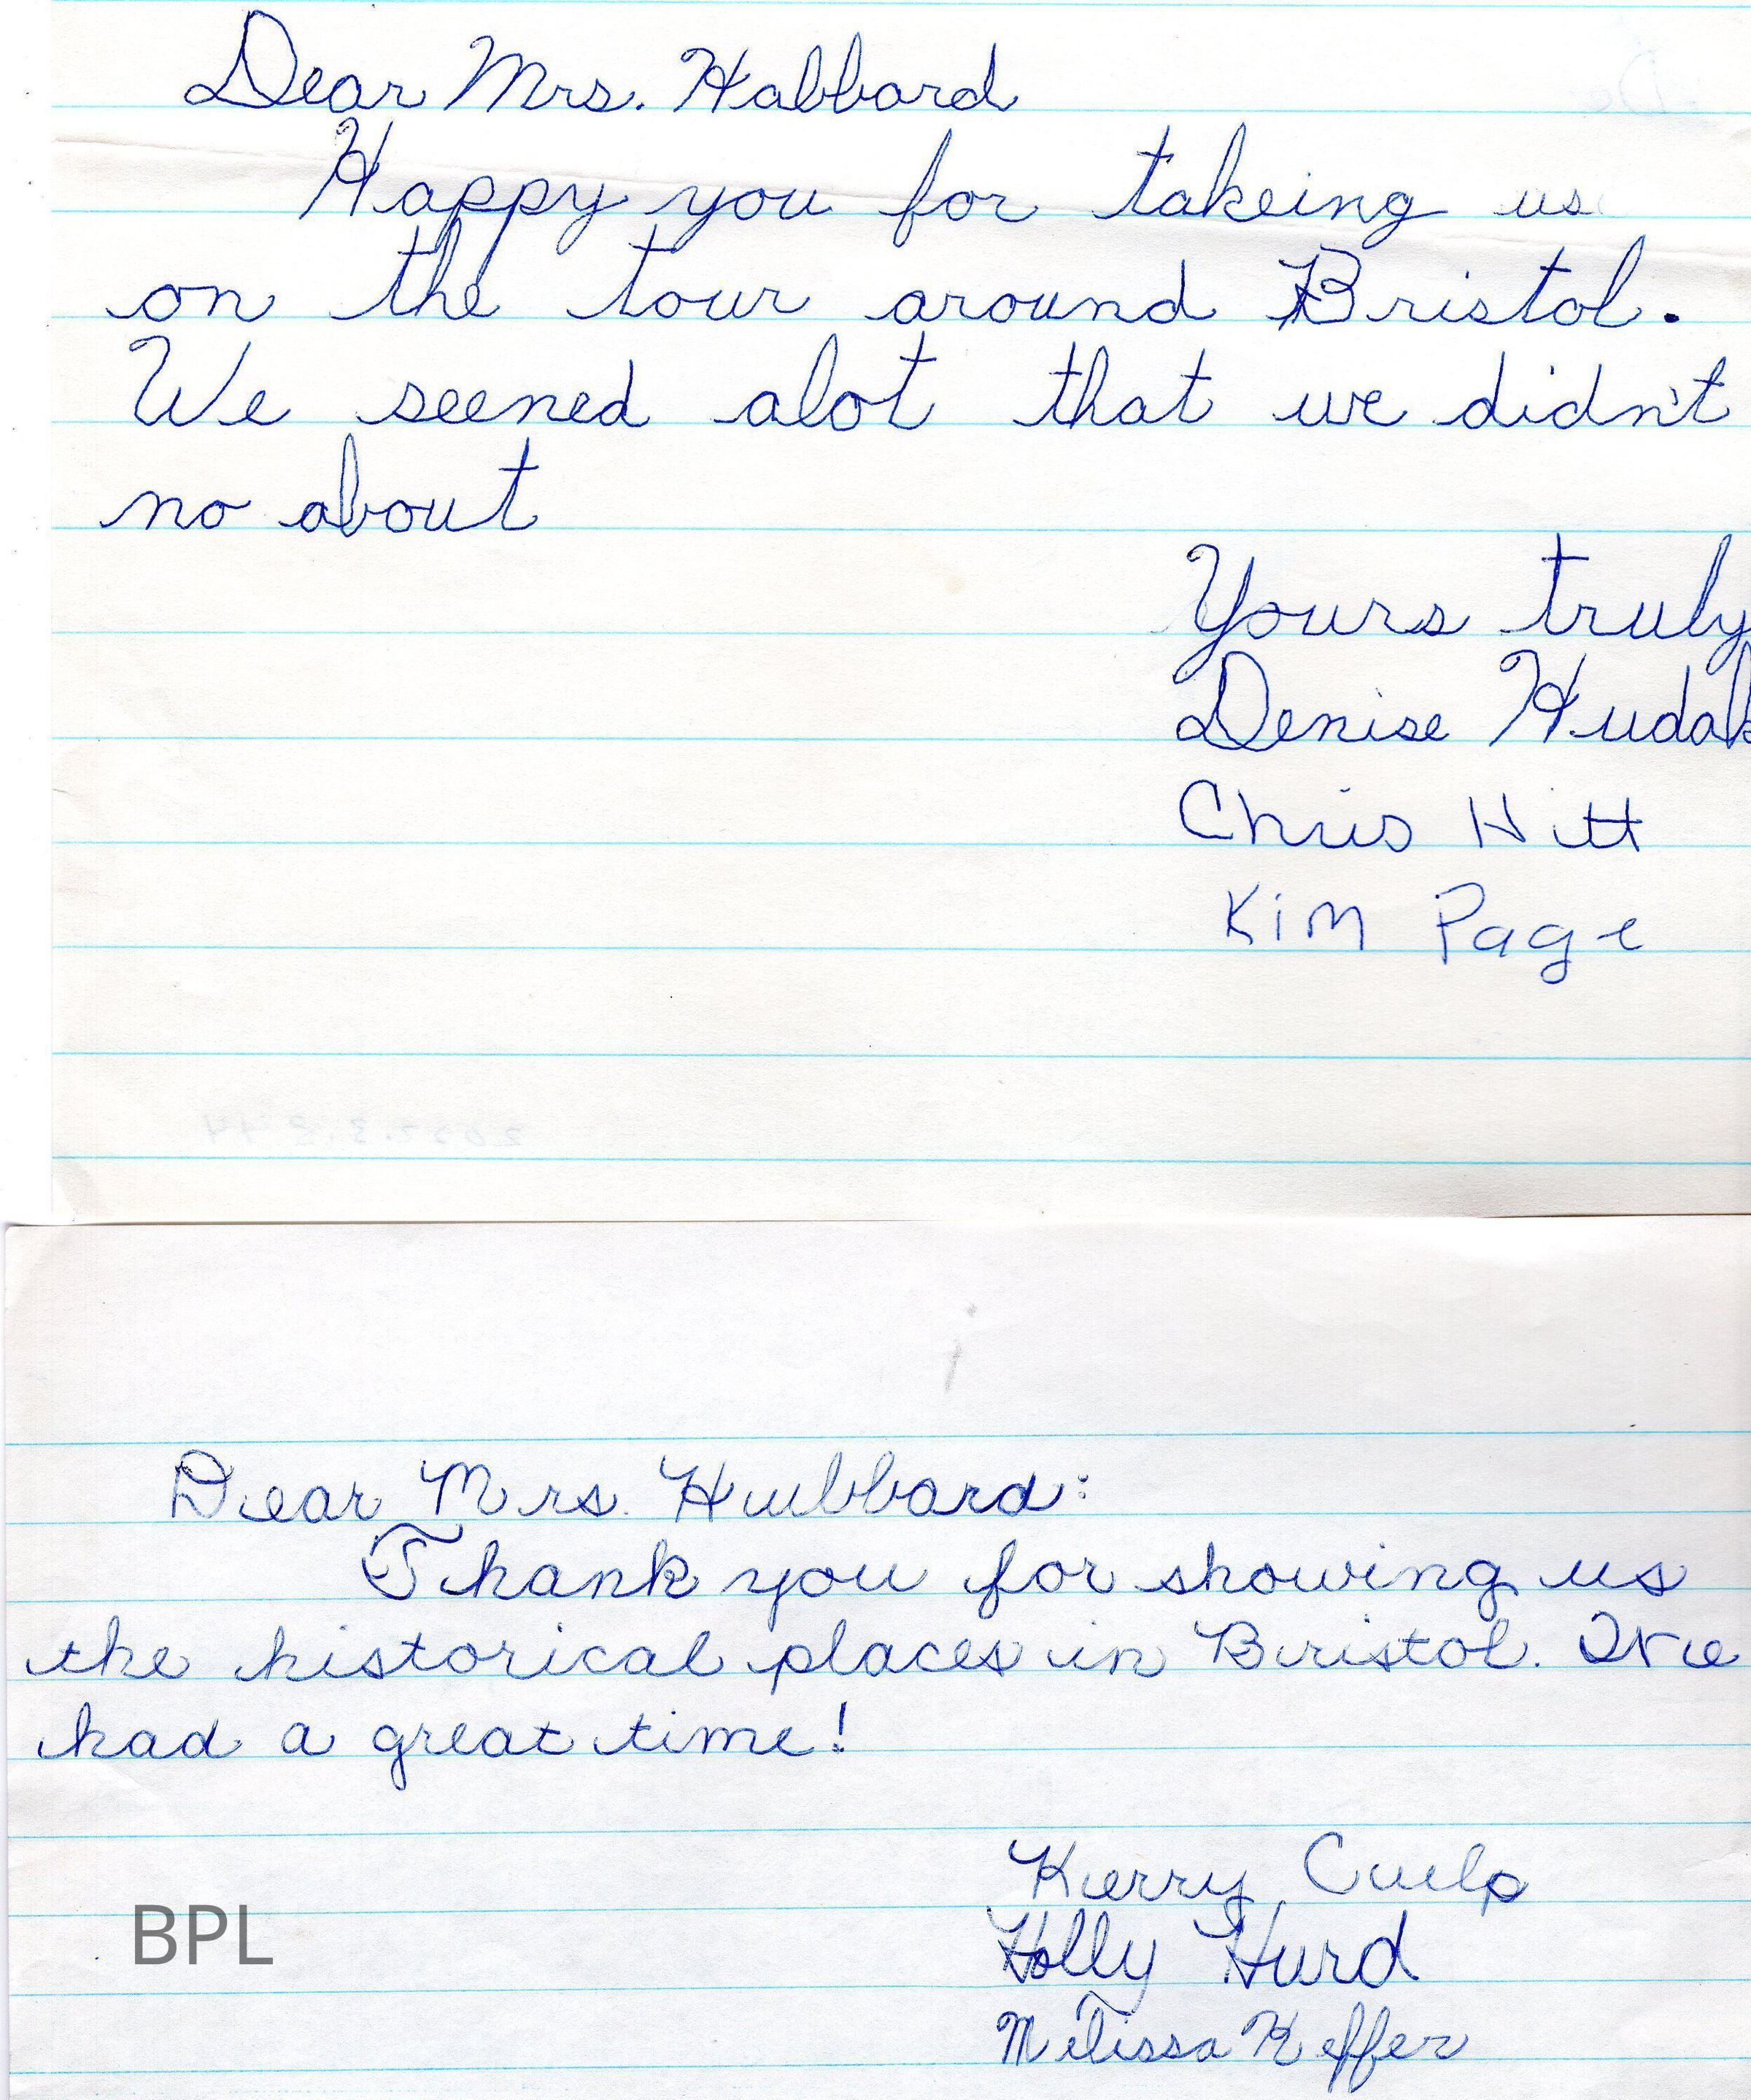 Dear Mrs. Habbard
Happy you for takeing us
on the tour around Bristol.
We seened alot that we didn't
no about
Yours truly
Denise Hudak
Chris Hitt
Kim Page
Dear Mrs. Hubbard:
Thank you for showing us
the historical places in Bristol. We
had a great time!
Kerry Culp
Holly Hurd
Melissa Keffer
BPL